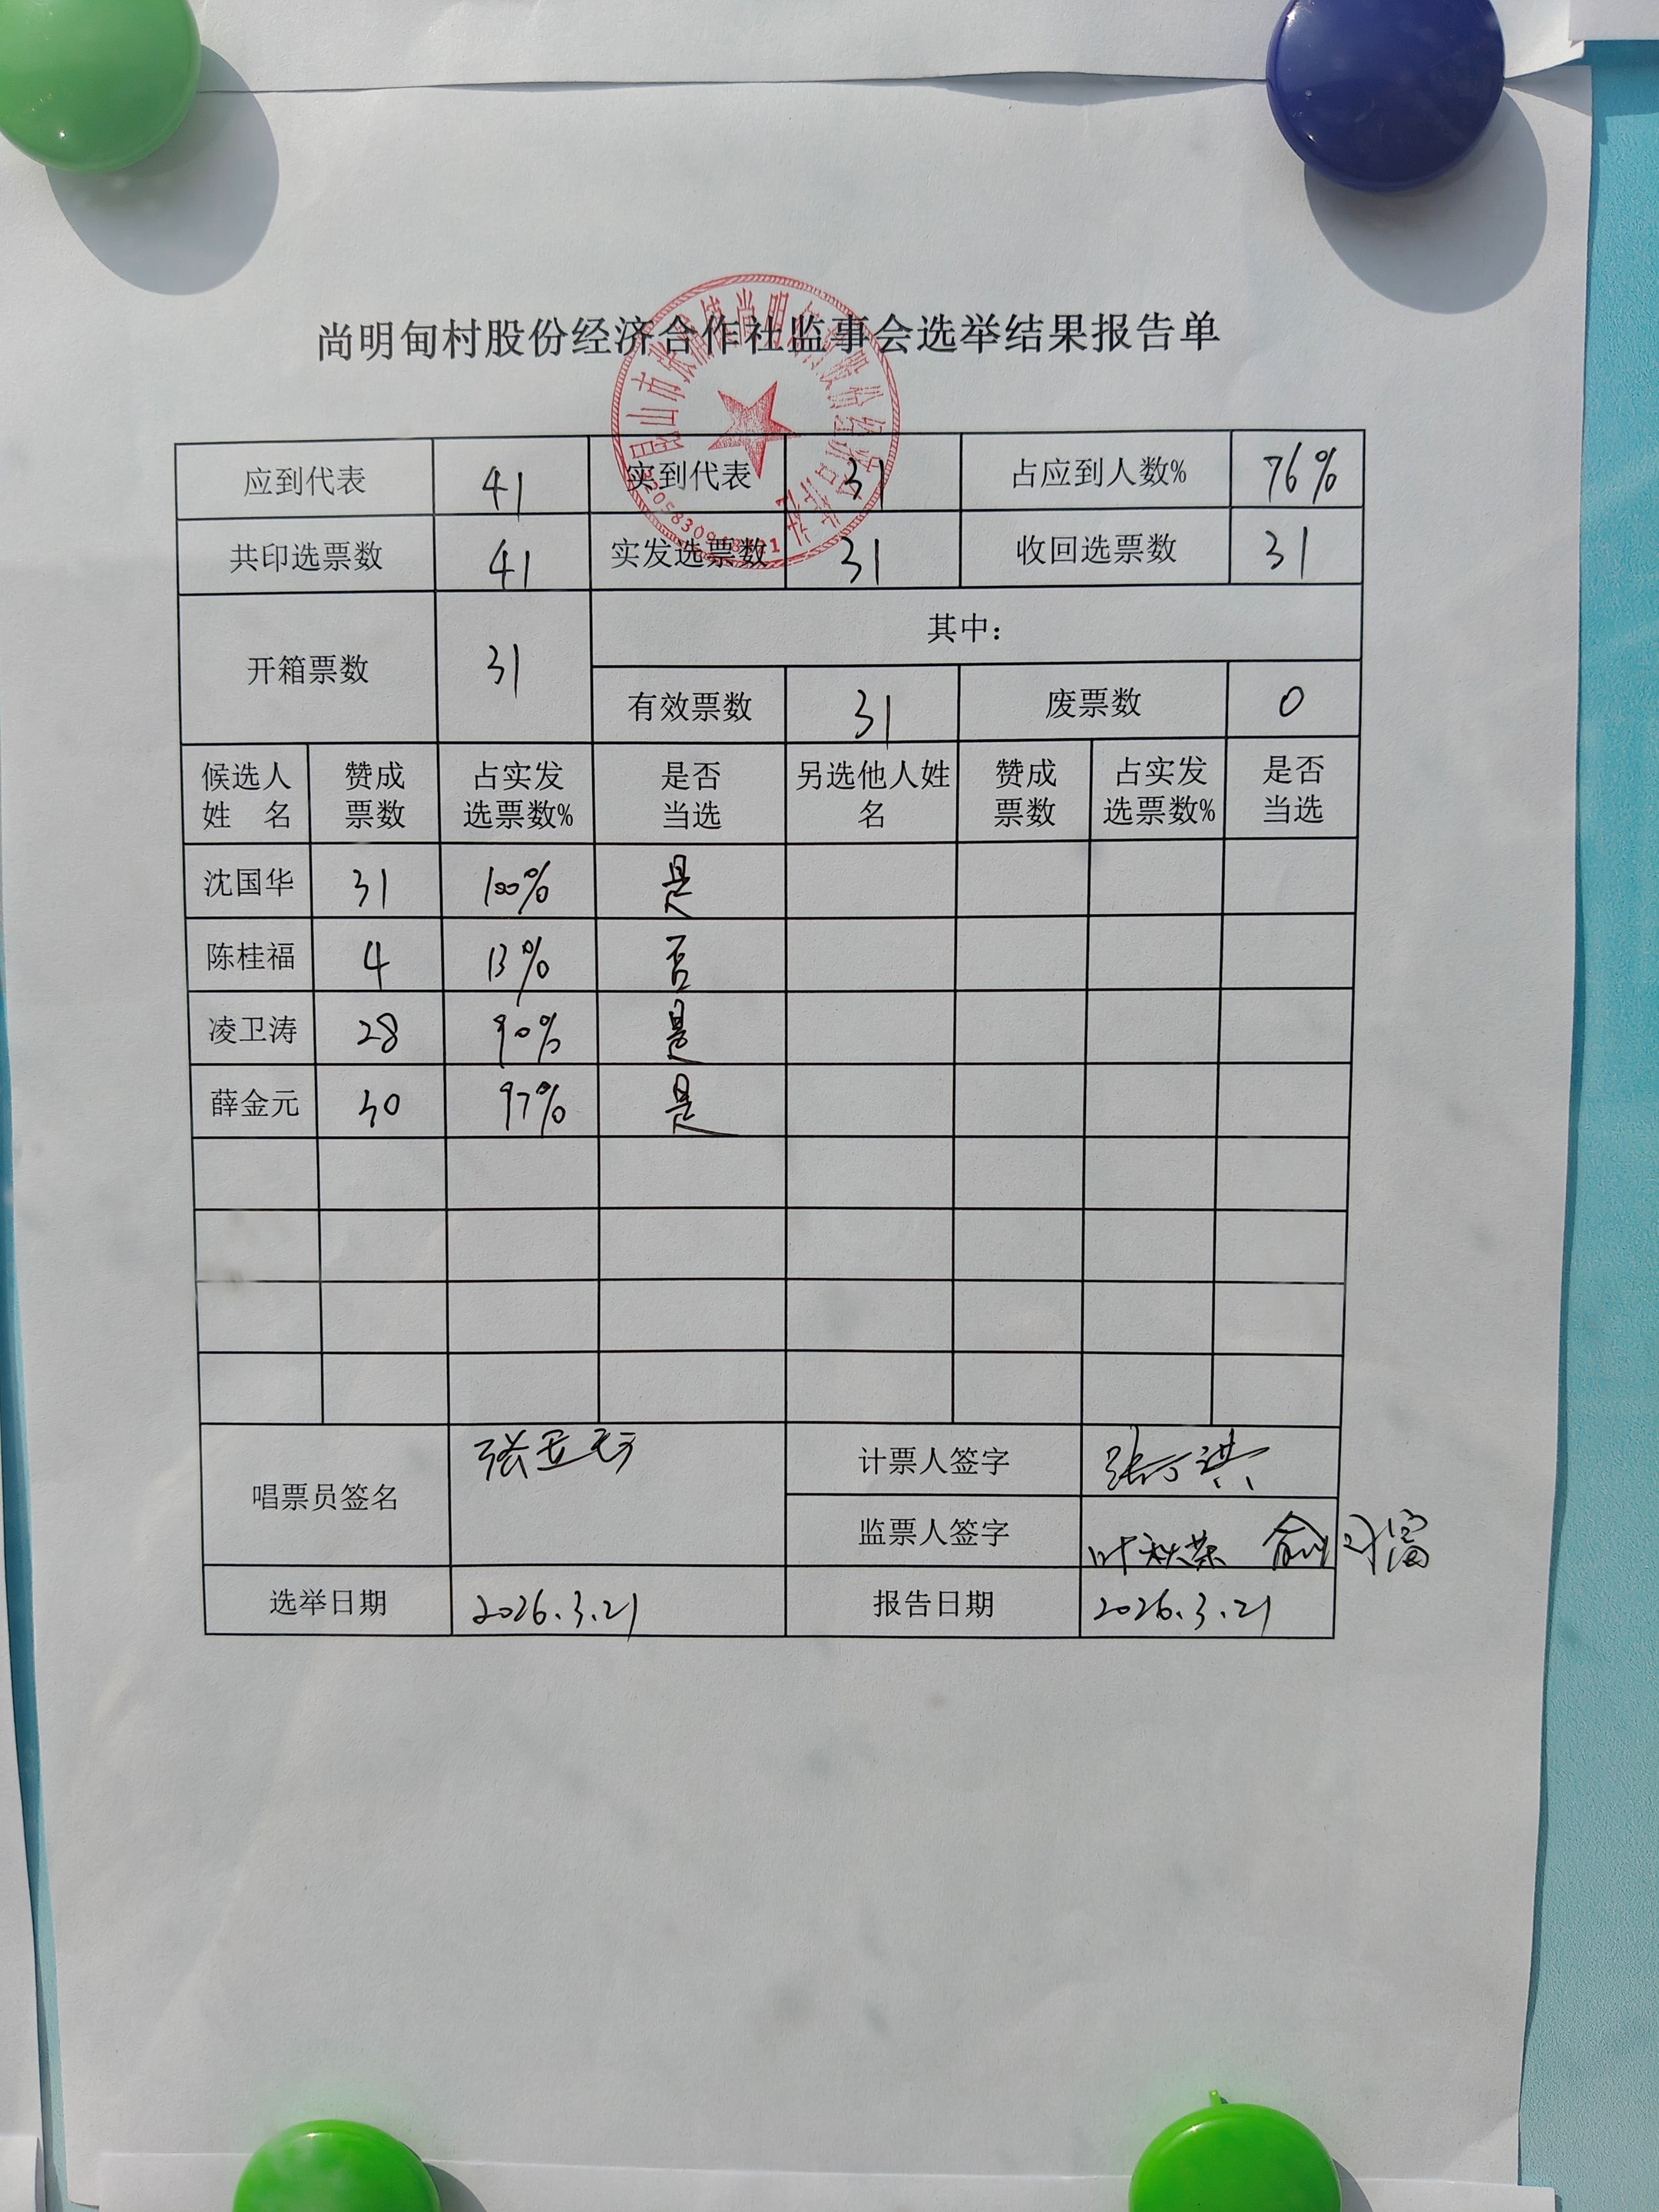 尚明甸村股份经济合作社监事会选举结果报告单
应到代表 41 实到代表 31 占应到人数% 76%
共印选票数 41 实发选票数 31 收回选票数 31
开箱票数 31 其中:
有效票数 31 废票数 0
候选人姓 名 赞成票数 占实发选票数% 是否当选 另选他人姓名 赞成票数 占实发选票数% 是否当选
沈国华 31 100% 是
陈桂福 4 13% 否
凌卫涛 28 90% 是
薛金元 30 97% 是
唱票员签名 张亚 计票人签字 张
监票人签字 叶秋荣 俞
选举日期 2026.3.21 报告日期 2026.3.21